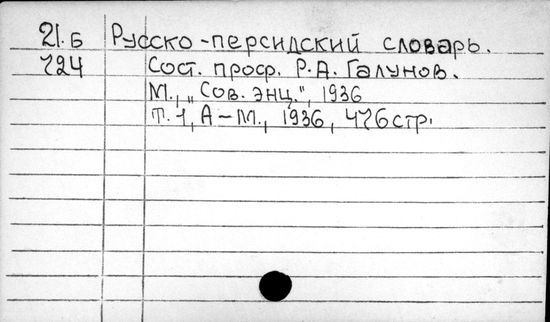 21.Б Русско-персидский словарь.
724 Сост. проф. Р.А. Галунов.
М., „Сов. энц.", 1936
Т. 1, А-М., 1936, 476 стр.